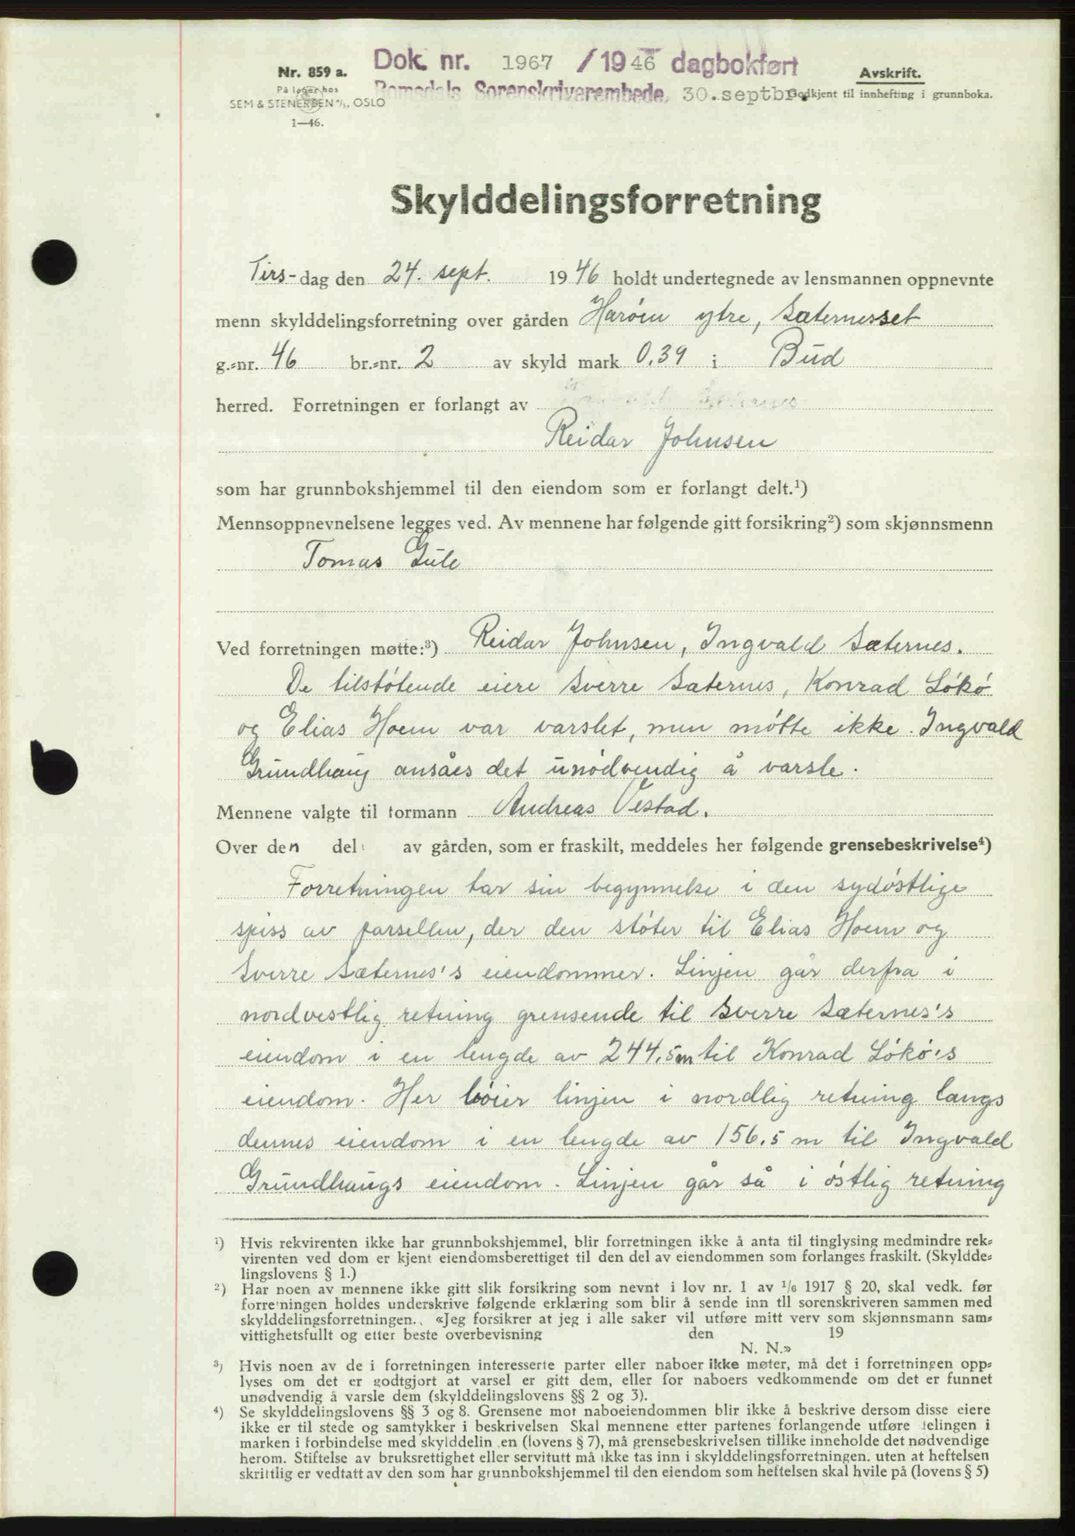 Dok. nr. 1967 / 1946 dagbokført
Romsdals Sorenskriverembede, 30.septbr.
Nr. 859 a.
På lager hos
SEM & STENERSEN A/S, OSLO
1—46.
Avskrift.
Godkjent til innhefting i grunnboka.
Skylddelingsforretning
Tirs-dag den 24. sept. 1946 holdt undertegnede av lensmannen oppnevnte
menn skylddelingsforretning over gården Harøien ytre, Sæternesset
g.-nr. 46 br.-nr. 2 av skyld mark 0.39 i Bud
herred. Forretningen er forlangt av
Reidar Johnsen
som har grunnbokshjemmel til den eiendom som er forlangt delt.¹)
Mennsoppnevnelsene legges ved. Av mennene har følgende gitt forsikring²) som skjønnsmenn
Tomas Gule
Ved forretningen møtte:³) Reidar Johnsen, Ingvald Sæternes.
De tilstøtende eiere Sverre Sæternes, Konrad Løkø
og Elias Hoem var varslet, men møtte ikke. Ingvald
Grundhaug ansåes det unødvendig å varsle.
Mennene valgte til formann Andreas Vestad.
Over den del av gården, som er fraskilt, meddeles her følgende grensebeskrivelse⁴)
Forretningen tar sin begynnelse i den sydøstlige
spiss av parsellen, der den støter til Elias Hoem og
Sverre Sæternes's eiendommer. Linjen går derfra i
nordvestlig retning grensende til Sverre Sæternes's
eiendom i en lengde av 244,5 m til Konrad Løkø's
eiendom. Her bøier linjen i nordlig retning langs
dennes eiendom i en lengde av 156,5 m til Ingvald
Grundhaugs eiendom. Linjen går så i østlig retning
¹) Hvis rekvirenten ikke har grunnbokshjemmel, blir forretningen ikke å anta til tinglysing medmindre rek-
virenten ved dom er kjent eiendomsberettiget til den del av eiendommen som forlanges fraskilt. (Skyldde-
lingslovens § 1.)
²) Har noen av mennene ikke gitt slik forsikring som nevnt i lov nr. 1 av 1/6 1917 § 20, skal vedk. før
forretningen holdes underskrive følgende erklæring som blir å sende inn til sorenskriveren sammen med
skylddelingsforretningen. «Jeg forsikrer at jeg i alle saker vil utføre mitt verv som skjønnsmann sam-
vittighetsfullt og etter beste overbevisning den 19
N. N.»
³) Hvis noen av de i forretningen interesserte parter eller naboer ikke møter, må det i forretningen opp-
lyses om det er godtgjort at varsel er gitt dem, eller for naboers vedkommende om det er funnet
unødvendig å varsle dem (skylddelingslovens §§ 2 og 3).
⁴) Se skylddelingslovens §§ 3 og 8. Grensene mot naboeiendommen blir ikke å beskrive dersom disse eiere
ikke er til stede og samtykker i beskrivelsen Skal mennene etter partenes forlangende utføre delingen i
marken i forbindelse med skylddelingen (lovens § 7), må grensebeskrivelsen tillike inneholde det nødvendige
herom. Stiftelse av bruksrettighet eller servitutt må ikke tas inn i skylddelingsforretningen. uten at heftelsen
skriftlig er vedtatt av den som har grunnbokshjemmel til den eiendom som heftelsen skal hvile på (lovens § 5)